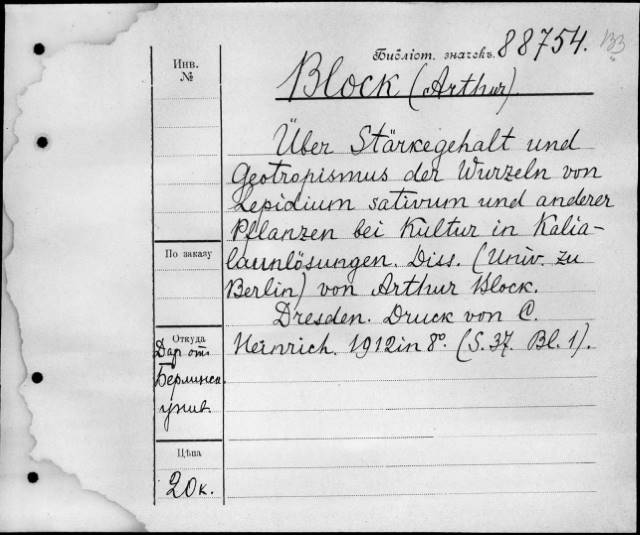 Библіот. значекъ. 88754. B3
Инв.
№
Block (Arthur).
Über Stärkegehalt und
Geotropismus der Wurzeln von
Lepidium sativum und anderer
Pflanzen bei Kultur in Kalia-
launlösungen. Diss. (Univ. zu
Berlin) von Arthur Block.
Dresden. Druck von C.
Heinrich. 1912 in 8°. (S. 37. Bl. 1).
По заказу
Откуда
Дар от
Берлинск.
унив.
Цѣна
20 к.